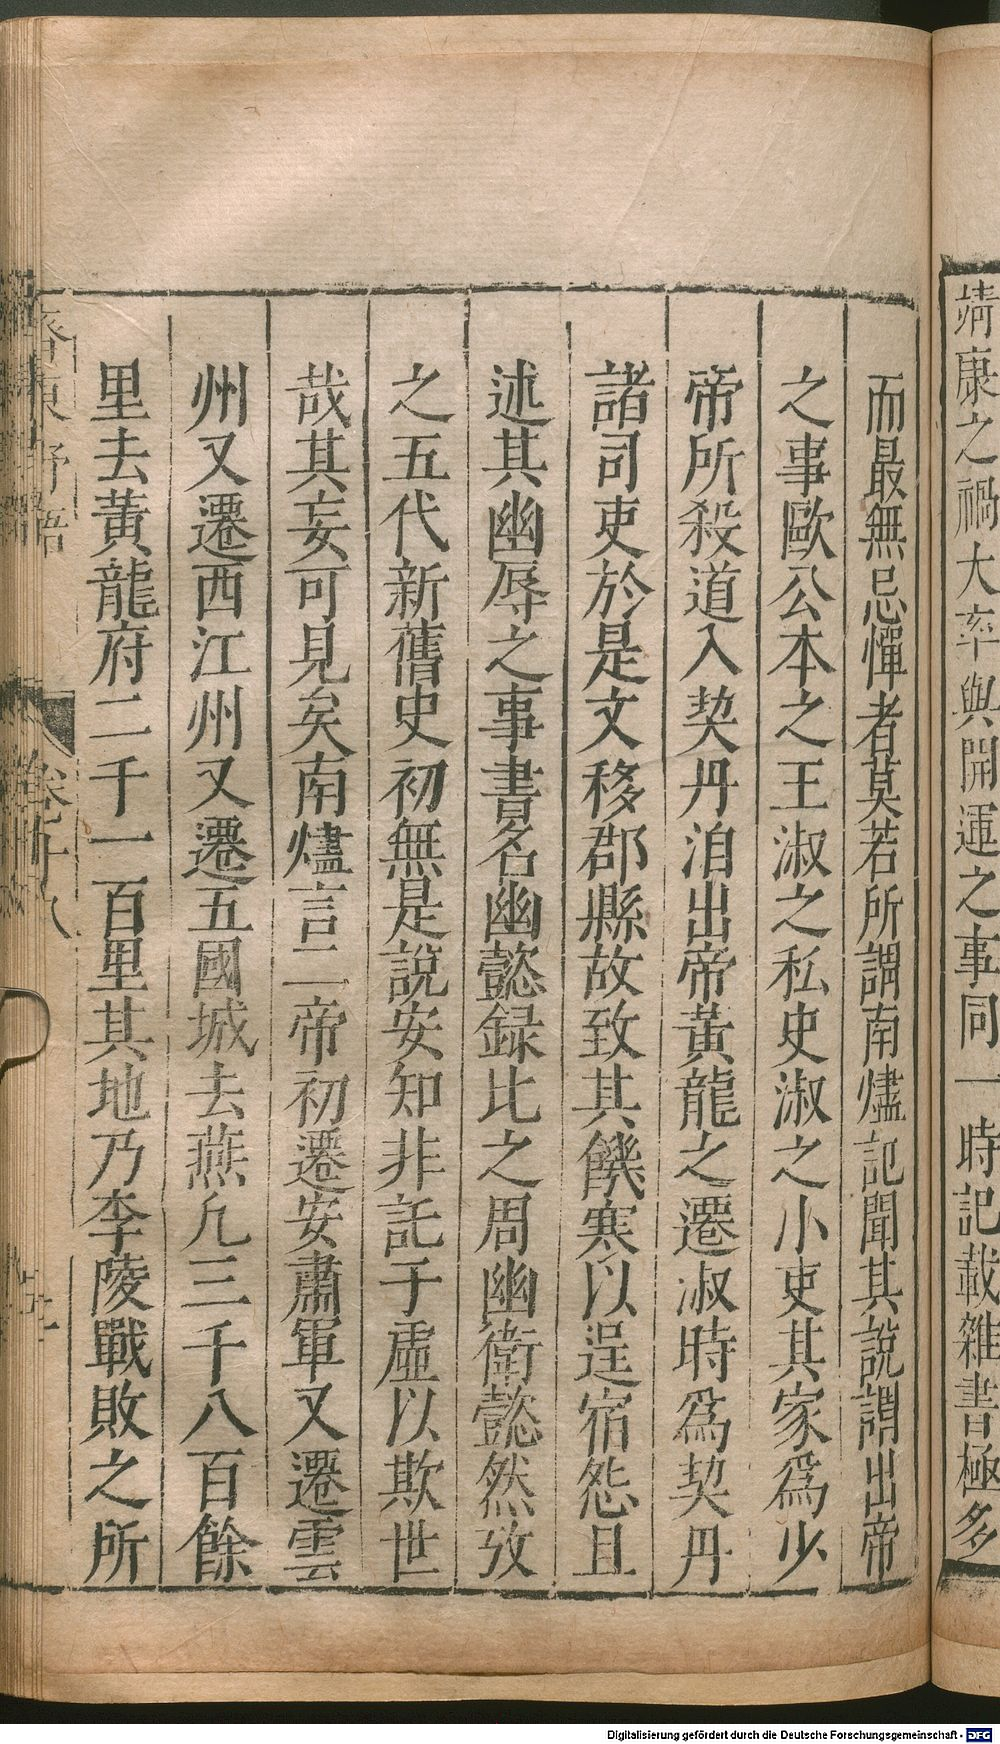 靖康之禍大率與開運之事同一時記載雜書極多
而最無忌憚者莫若所謂南燼記聞其說謂出帝
之事歐公本之王淑之私史淑之小吏其家爲少
帝所殺道入契丹洎出帝黃龍之遷淑時爲契丹
諸司吏於是文移郡縣故致其饑寒以逞宿怨且
述其幽辱之事書名幽懿録比之周幽衛懿然攷
之五代新舊史初無是說安知非託子虛以欺世
哉其妄可見矣南燼言二帝初遷安肅軍又遷雲
州又遷西江州又遷五國城去燕凢三千八百餘
里去黃龍府二千一百里其地乃李陵戰敗之所
齊東野語
卷十八
Digitalisierung gefördert durch die Deutsche Forschungsgemeinschaft - DFG